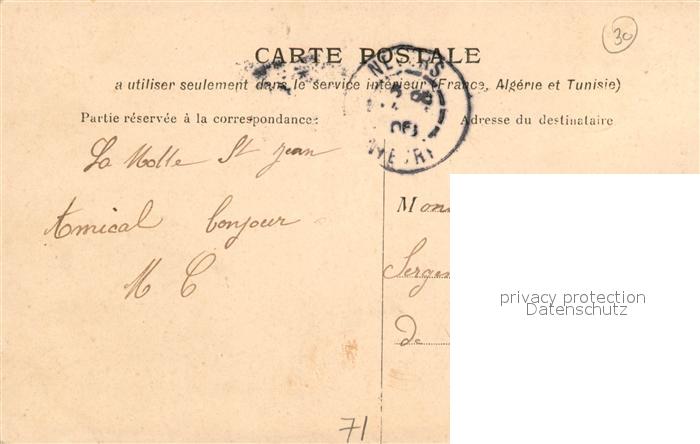 30
CARTE POSTALE
a utiliser seulement dans le service intérieur (France, Algérie et Tunisie)
NEVERS
NIEVRE
Partie réservée à la correspondance:
Adresse du destinataire
La Motte St Jean
Amical bonjour
M C
Mon
Serge
de
privacy protection
Datenschutz
71